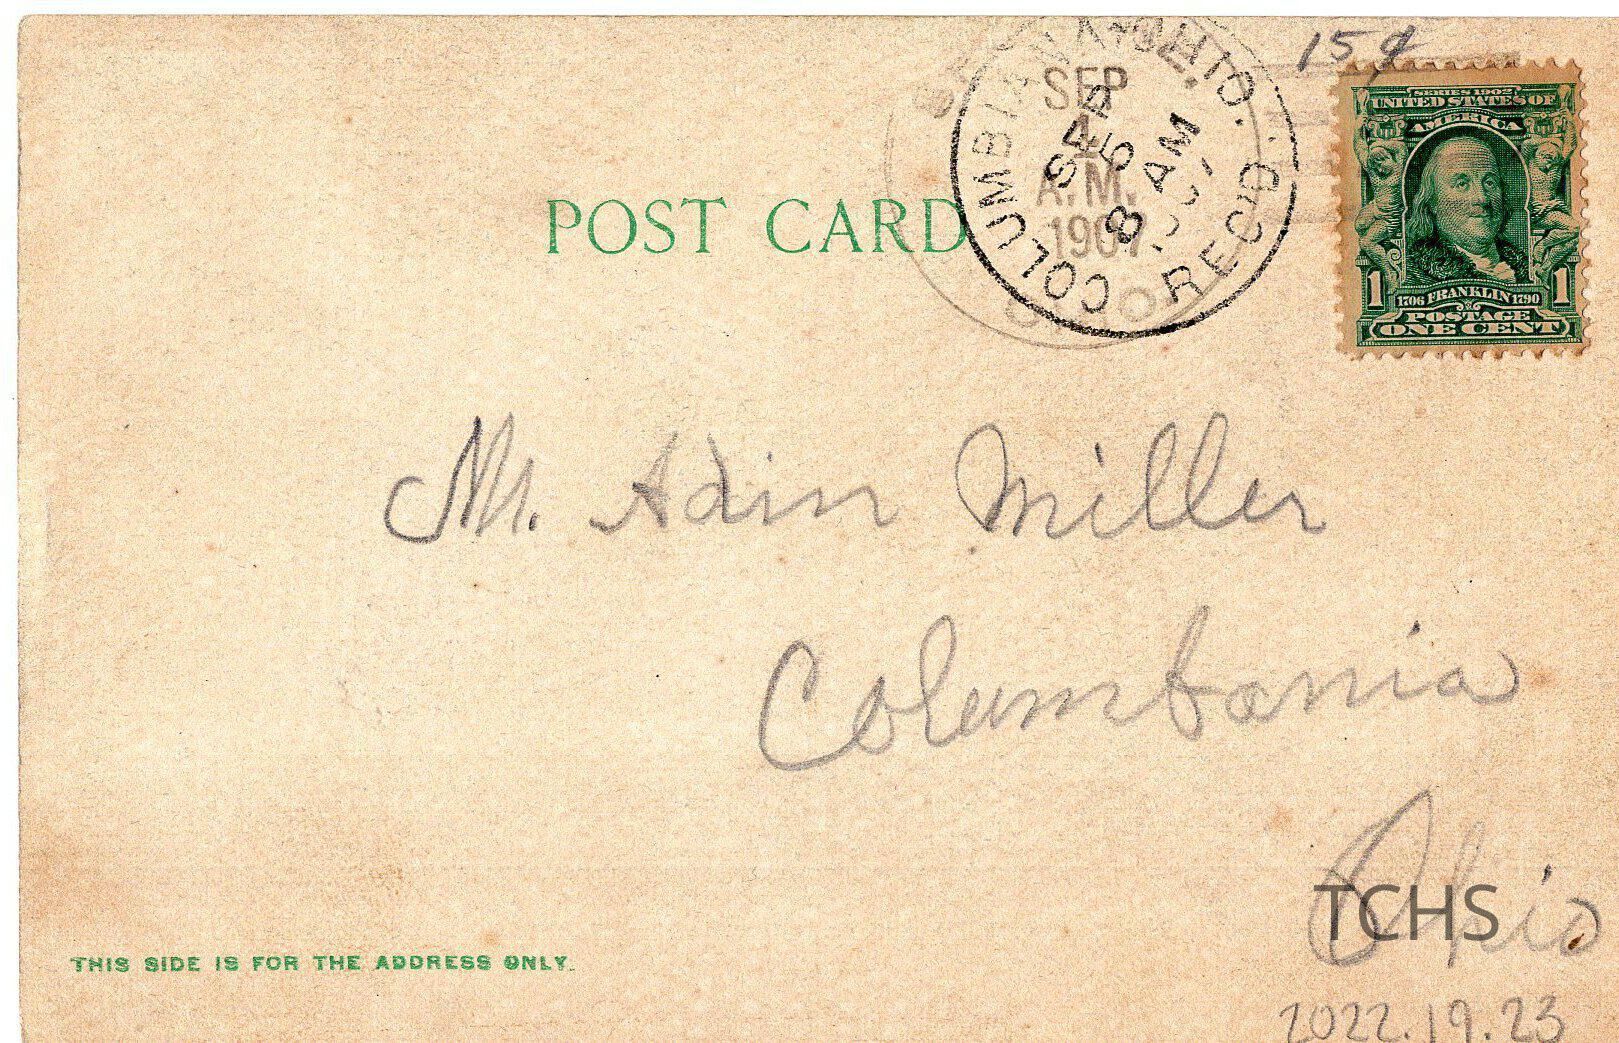 15¢
COLUMBIANA, OHIO. REC'D.
SEP
5
8 AM
SEP
4
A.M.
1907
SERIES 1902
UNITED STATES OF
AMERICA
1 1706 FRANKLIN 1790 1
POSTAGE
ONE CENT
POST CARD
M. Adin Miller
Columbania
Ohio
TCHS
THIS SIDE IS FOR THE ADDRESS ONLY.
2022.19.23